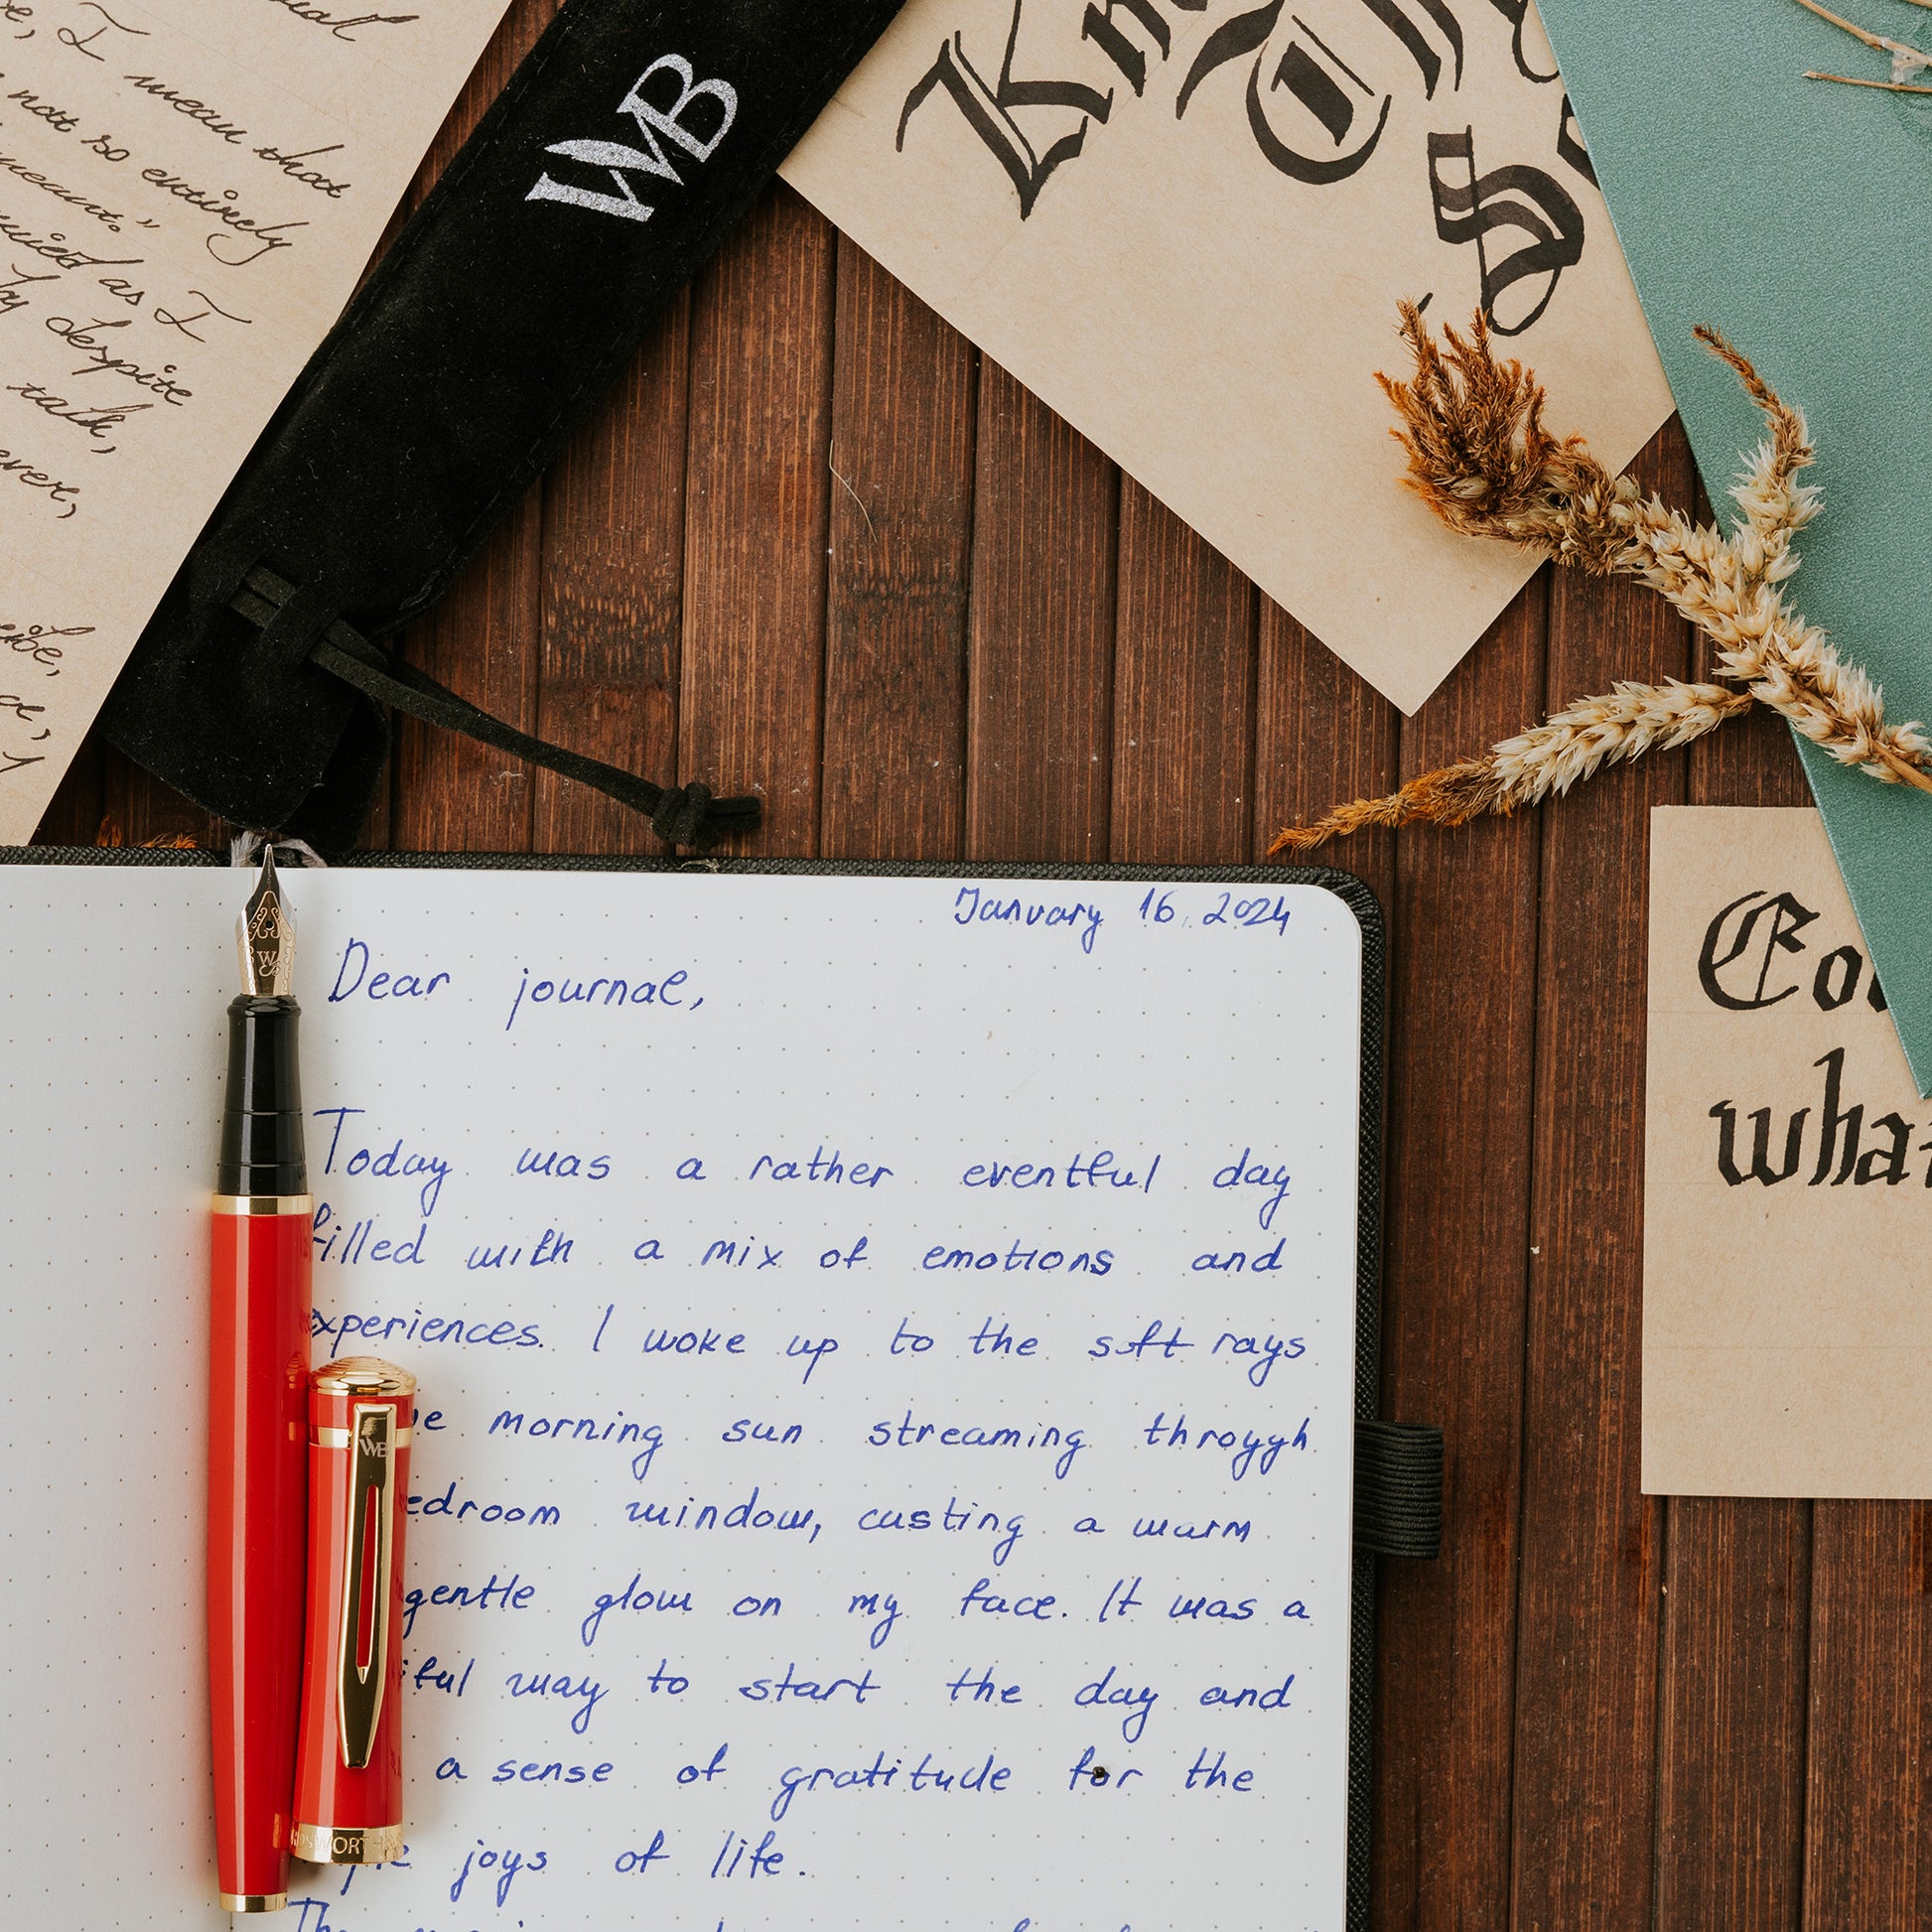 I mean that
not so entirely
meant."
as I
despite
talk,
WB
January 16, 2024
Dear journal,
Today was a rather eventful day
filled with a mix of emotions and
experiences. I woke up to the soft rays
morning sun streaming throygh
edroom window, casting a warm
gentle glow on my face. It was a
iful way to start the day and
a sense of gratitude for the
joys of life.
WB
what